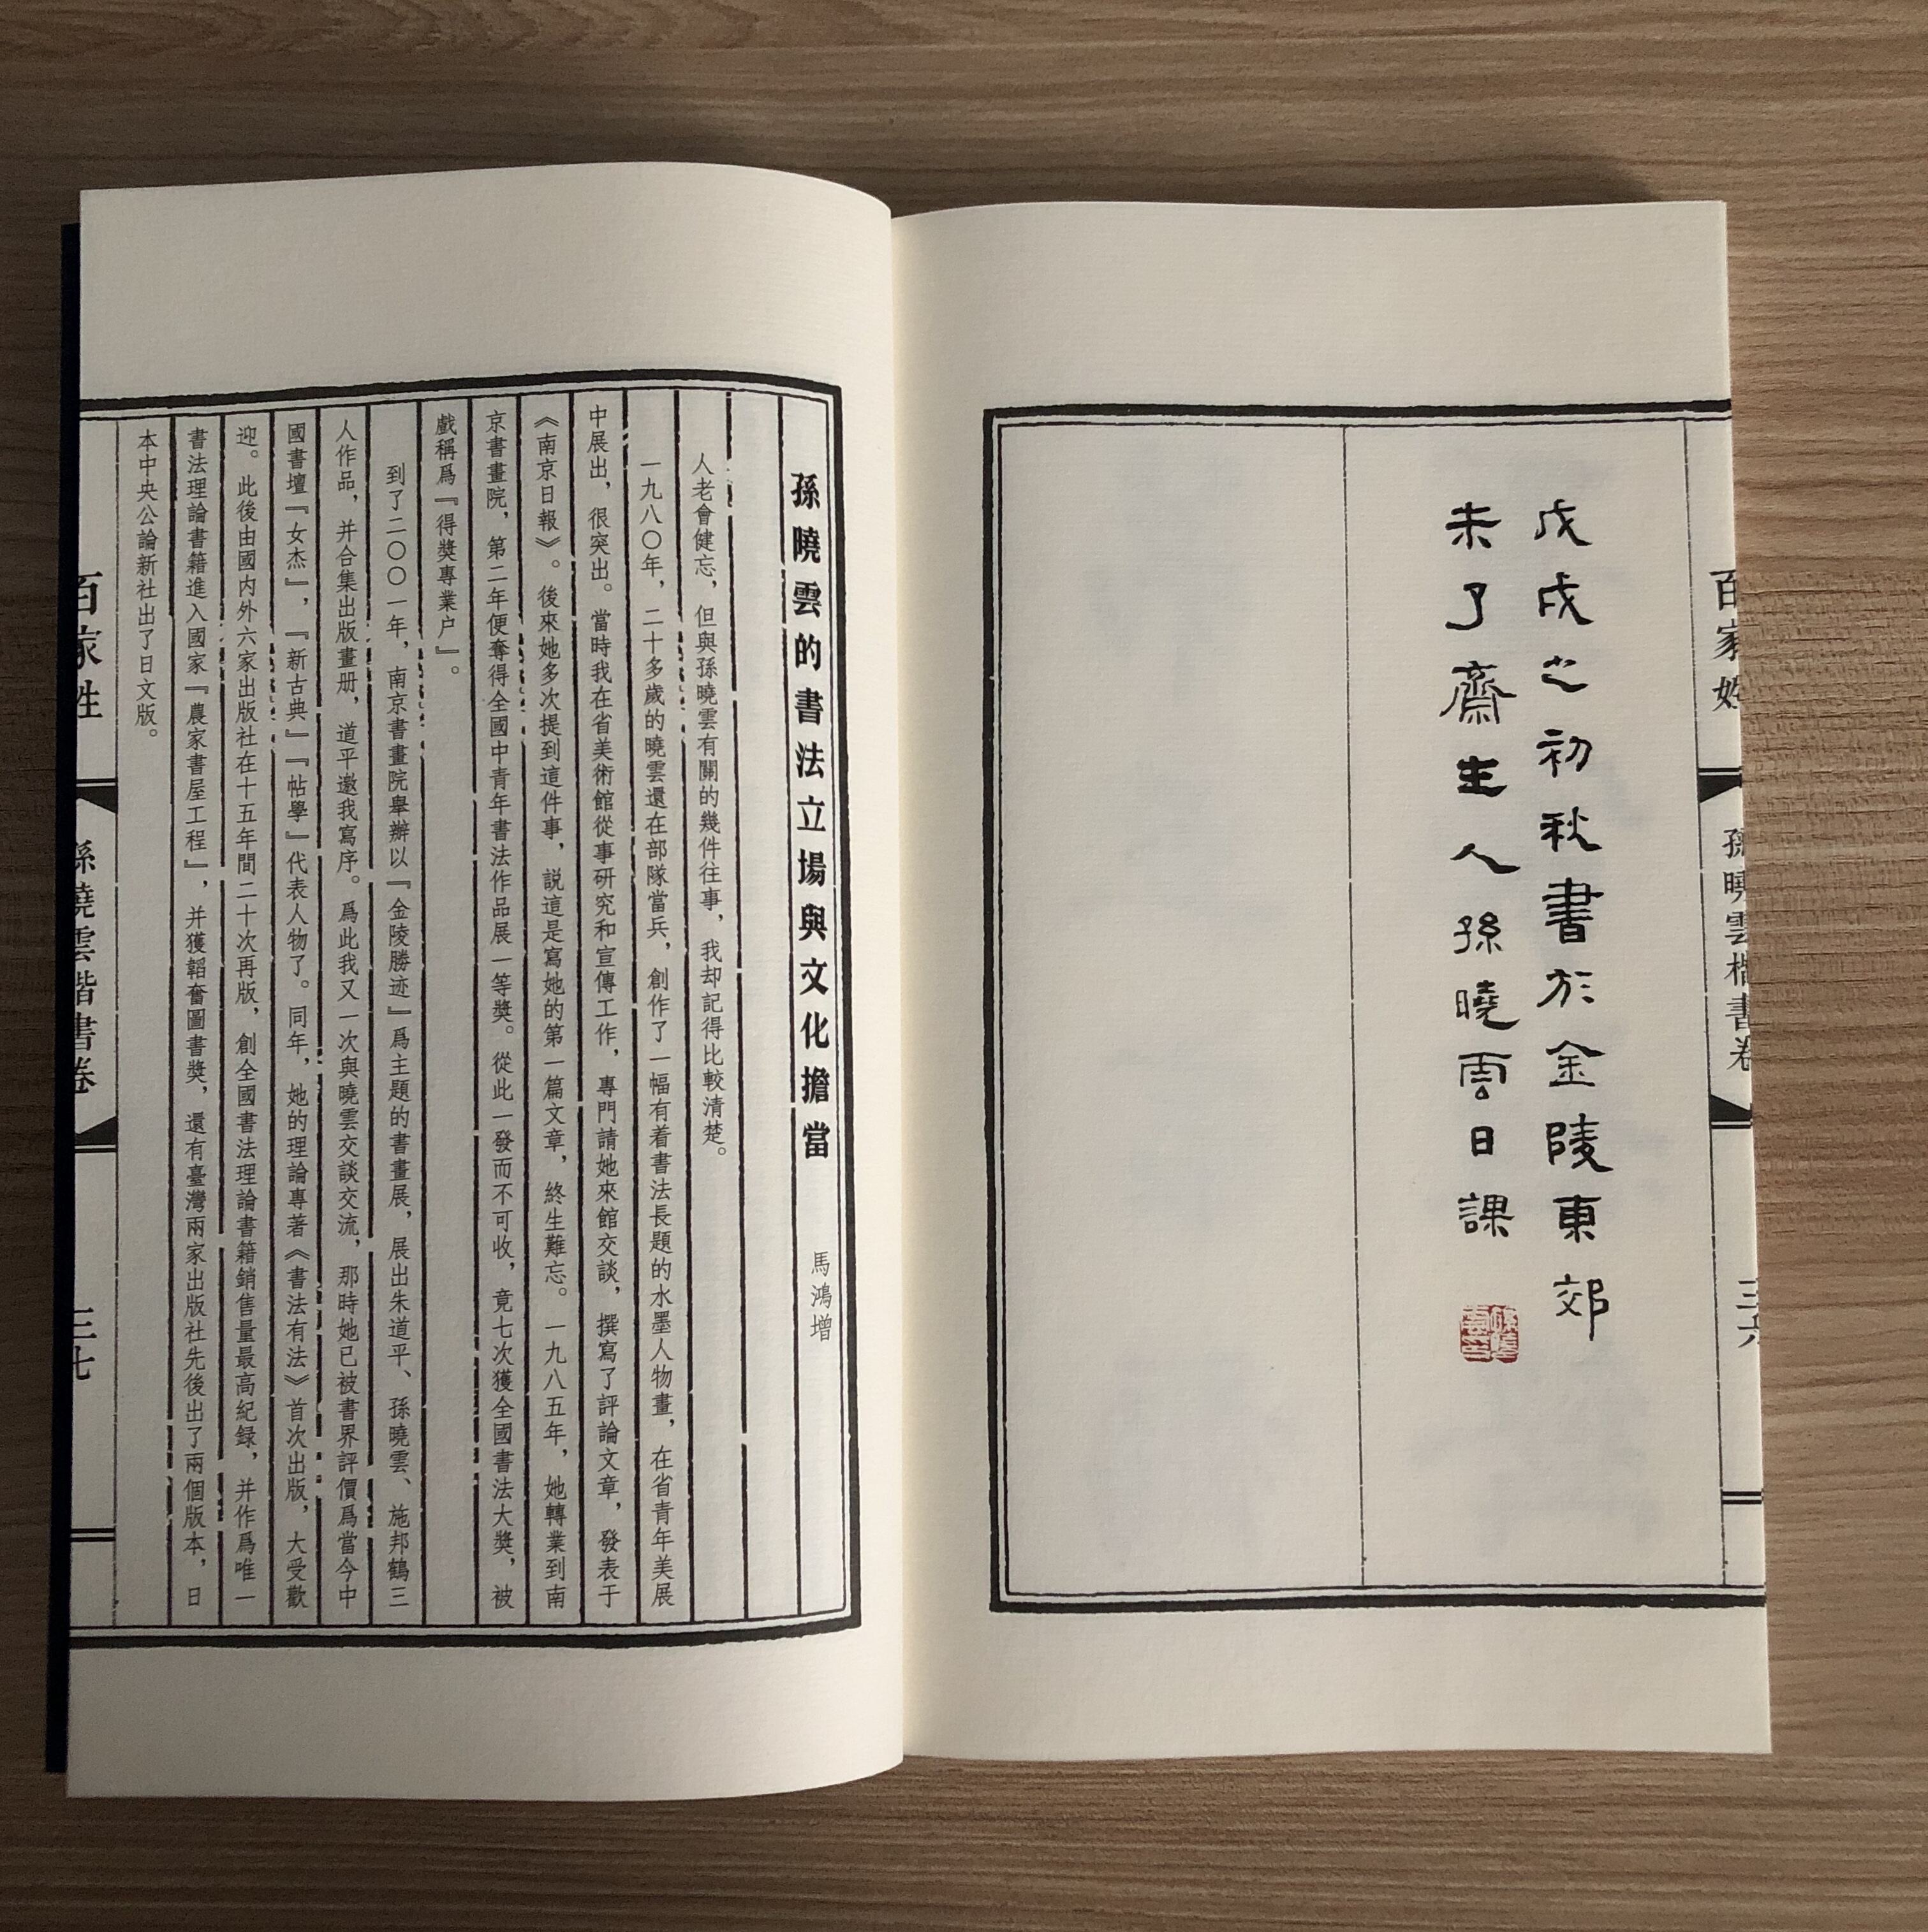 百家姓
孫曉雲楷書卷
三六
戊戌之初秋書於金陵東郊
未了齋主人孫曉雲日課
孫曉雲的書法立場與文化擔當 馬鴻增
人老會健忘，但與孫曉雲有關的幾件往事，我却記得比較清楚。
一九八〇年，二十多歲的曉雲還在部隊當兵，創作了一幅有着書法長題的水墨人物畫，在省青年美展
中展出，很突出。當時我在省美術館從事研究和宣傳工作，專門請她來館交談，撰寫了評論文章，發表于
《南京日報》。後來她多次提到這件事，説這是寫她的第一篇文章，終生難忘。一九八五年，她轉業到南
京書畫院，第二年便奪得全國中青年書法作品展一等獎。從此一發而不可收，竟七次獲全國書法大獎，被
戲稱爲『得獎專業户』。
到了二〇〇一年，南京書畫院舉辦以『金陵勝迹』爲主題的書畫展，展出朱道平、孫曉雲、施邦鶴三
人作品，并合集出版畫册，道平邀我寫序。爲此我又一次與曉雲交談交流，那時她已被書界評價爲當今中
國書壇『女杰』，『新古典』『帖學』代表人物了。同年，她的理論專著《書法有法》首次出版，大受歡
迎。此後由國内外六家出版社在十五年間二十次再版，創全國書法理論書籍銷售量最高紀録，并作爲唯一
書法理論書籍進入國家『農家書屋工程』，并獲韜奮圖書獎，還有臺灣兩家出版社先後出了兩個版本，日
本中央公論新社出了日文版。
百家姓
孫曉雲楷書卷
三七